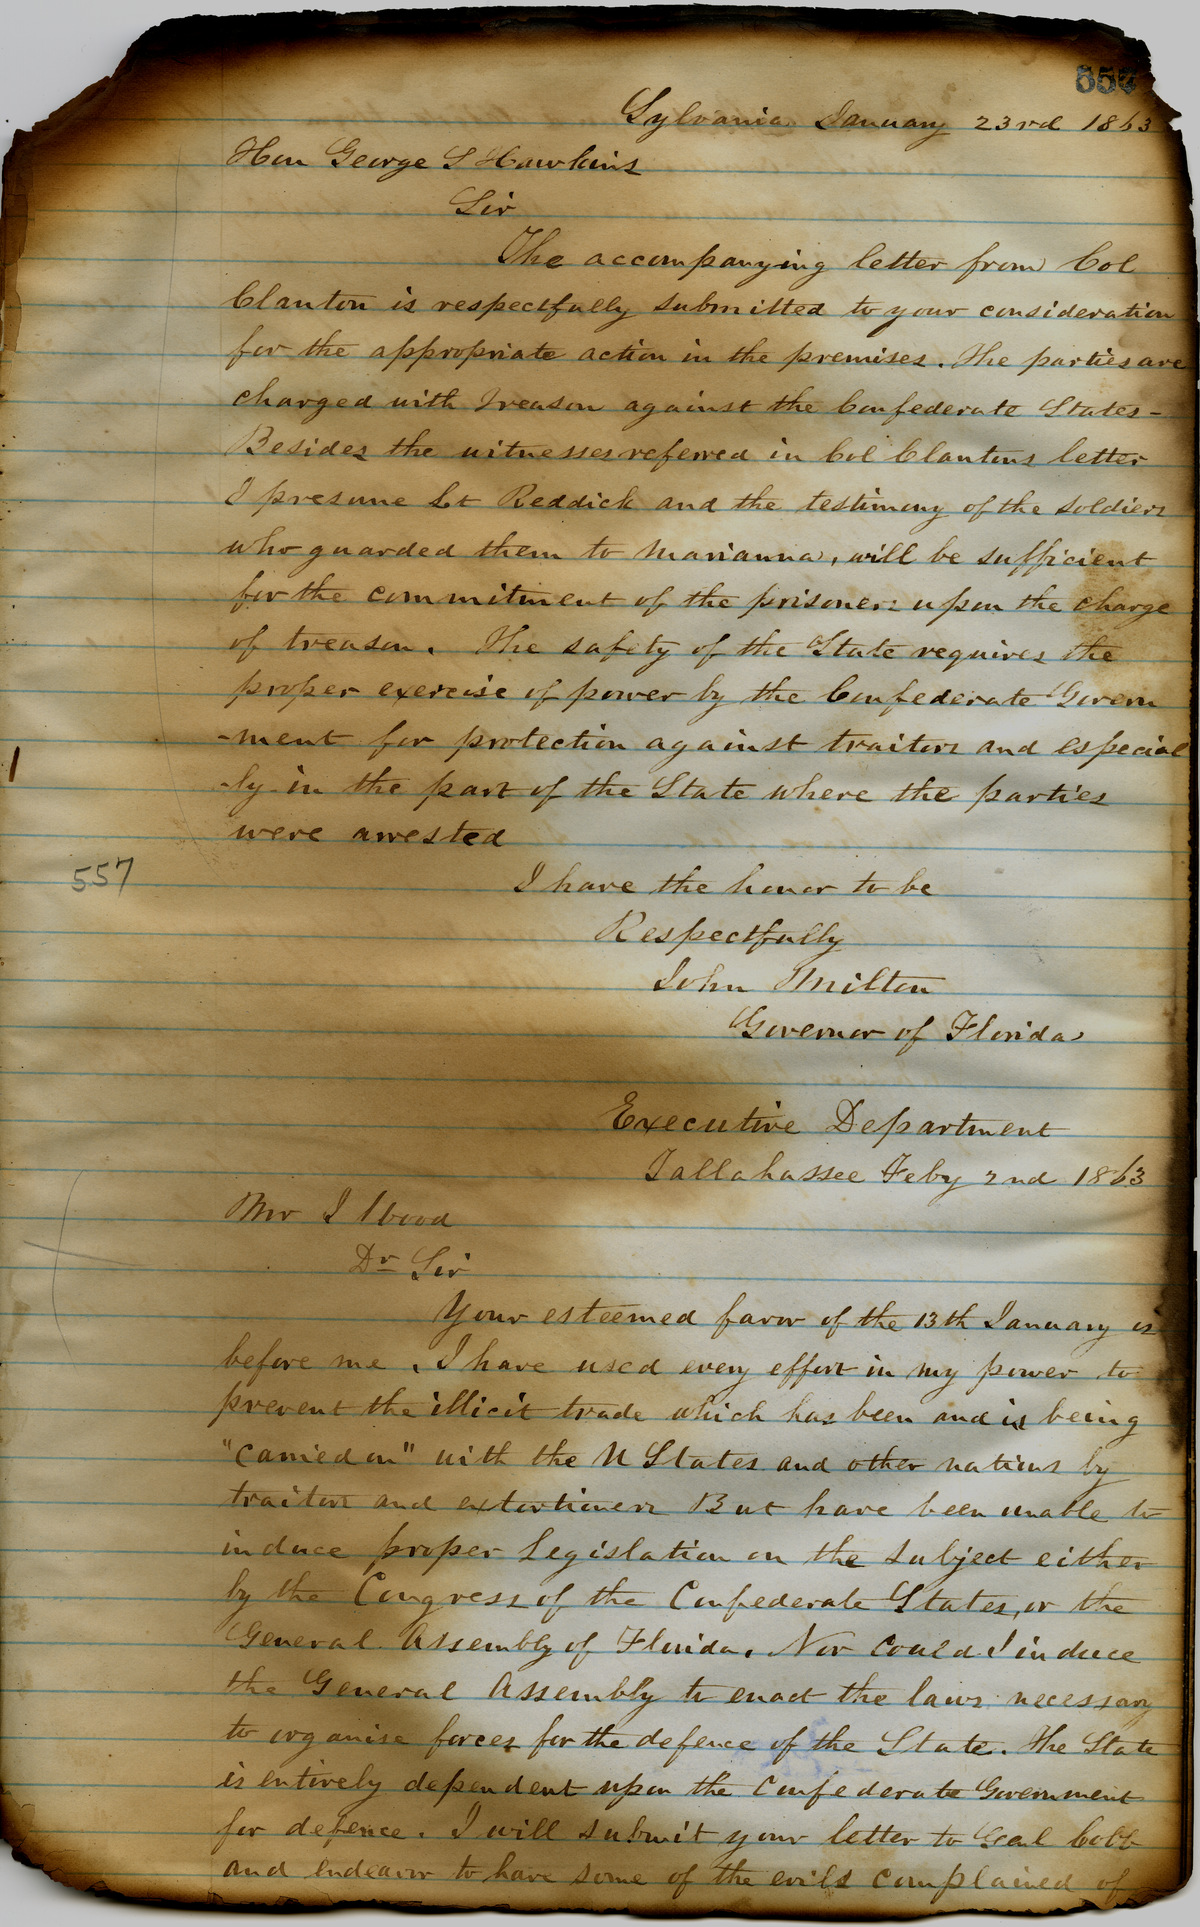 557
Sylvania January 23rd 1863
Hon George S Hawkins
Sir
The accompanying letter from Col
Clanton is respectfully submitted to your consideration
for the appropriate action in the premises. The parties are
charged with Treason against the Confederate States -
Besides the witnesses referred in Col Clantons letter
I presume Lt Reddick and the testimony of the soldiers
who guarded them to Marianna, will be sufficient
for the commitment of the prisoners upon the charge
of treason. The safety of the State requires the
proper exercise of power by the Confederate Govern
-ment for protection against traitors and especial
-ly in the part of the State where the parties
were arrested
557
I have the honor to be
Respectfully
John Milton
Governor of Florida
Executive Department
Tallahassee Feby 2nd 1863
Mr J Wood
Dr Sir
Your esteemed favor of the 13th January is
before me. I have used every effort in my power to
prevent the illicit trade which has been and is being
"carried on" with the U States and other nations by
traitors and extortioners But have been unable to
induce proper Legislation on the subject either
by the Congress of the Confederate States, or the
General Assembly of Florida. Nor could I induce
the General Assembly to enact the laws necessary
to organise forces for the defence of the State. The State
is entirely dependent upon the Confederate Government
for defence. I will submit your letter to Genl Cobb
and endeavor to have some of the evils complained of